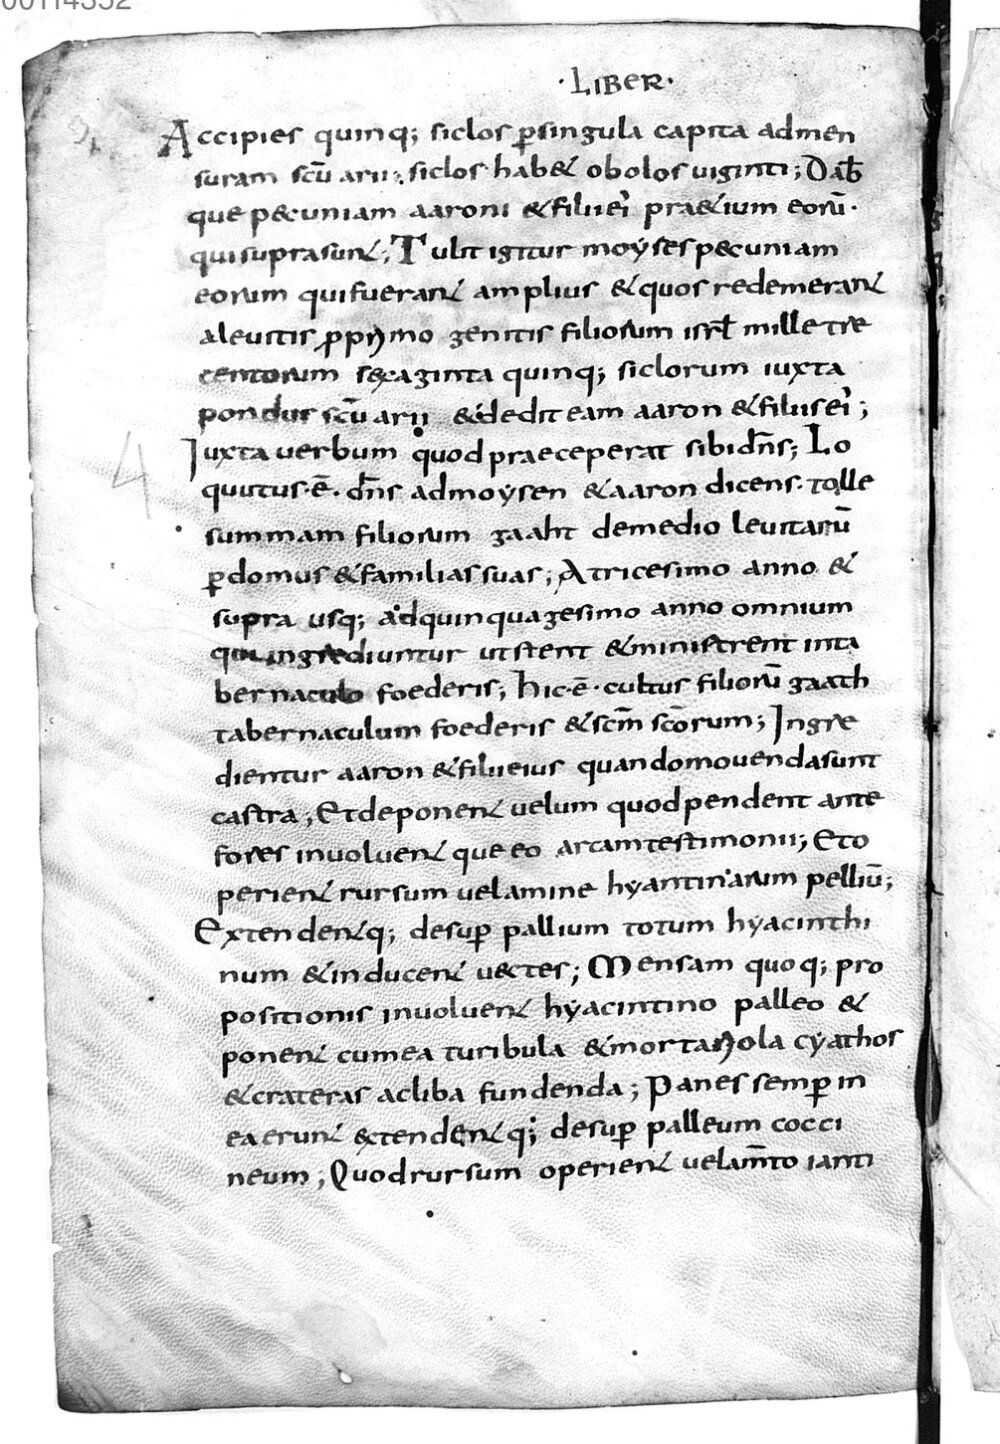 00114352
·LIBER·
Accipies quinq; siclos ꝑsingula capita admen
suram scū arii; siclos hab& obolos uiginti; Dab̄
que p&cuniam aaroni &filiiei' pra&ium eorū·
quisuprasunt; Tulit igitur moyses p&cuniam
eorum quifuerant amplius &quos redemerant
aleuitis ꝓprimo genitis filiorum isrl̄ mille tre
centorum s&xaginta quinq; siclorum iuxta
pondus scū arii &dedit eam aaron &filiisei';
Iuxta uerbum quod praeceperat sibi dn̄s; Lo
quutus·ē· dn̄s admoysen &aaron dicens· tolle
summam filiorum gaaht demedio leuitarū
ꝑdomus &familias suas; Atricesimo anno &
supra usq; adquinquagesimo anno omnium
qui ingrediuntur utstent &ministrent inta
bernaculo foederis; hic·ē· cultus filiorū gaath
tabernaculum foederis &scm̄ scōrum; Ingre
dientur aaron &filiieius quandomouendasunt
castra; Etdeponent uelum quodpendent ante
fores inuoluent que eo arcamtestimonii; Eto
perient rursum uelamine hyantinarum pelliū;
Extendentq; desuꝑ pallium totum hyacinthi
num &inducent u&ctes; Mensam quoq; pro
positionis inuoluent hyacintino palleo &
ponent cumea turibula &mortariola cyathos
&crateras adliba fundenda; Panes semꝑ in
eaerunt &xtendentq; desuꝑ palleum cocci
neum; Quodrursum operient uelam̄to ianti